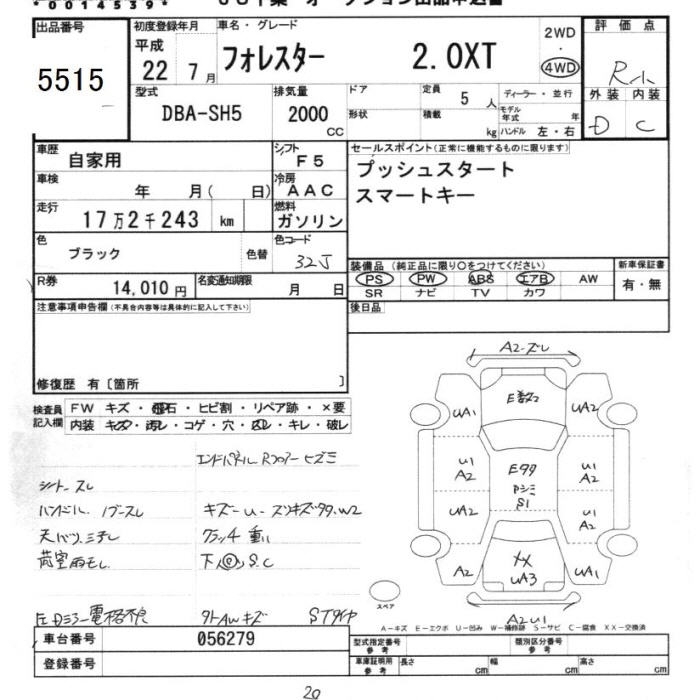 *0014539*
出品番号
5515
初度登録年月
平成
22 年 7 月
車名・グレード
フォレスター 2.0XT
2WD
・
4WD
評価点
R
外装 内装
D C
型式
DBA-SH5
排気量
2000
CC
ドア
形状
定員 5 人
積載 kg
ディーラー・並行
モデル
年式 年
ハンドル 左・右
車歴
自家用
シフト
F5
車検
年 月( 日)
冷房
AAC
走行
17万2千243 km
燃料
ガソリン
色
ブラック
色替
色コード
32J
R券
14,010 円
名変通知期限
月 日
セールスポイント(正常に機能するものに限ります)
プッシュスタート
スマートキー
装備品 (純正品に限り○をつけてください)
PS PW ABS エアB AW
SR ナビ TV カワ
新車保証書
有・無
後日品
注意事項申告欄(不具合内容等は具体的に記入して下さい)
修復歴 有〔箇所 〕
検査員
記入欄
FW キズ・飛石・ヒビ割・リペア跡・×要
内装 キズ・汚レ・コゲ・穴・スレ・キレ・破レ
エンドパネル Rフロアー ヒズミ
シート スレ
ハンドル
キズ-U-スリキズ・99.W2
天バリ
クラッチ 重い
荷室雨モレ
下 S.C
左Dミラー電格不良
外AWキズ
STタイヤ
A2-ズレ
UA1
UA2
U1
A2
E99
Pシミ
S1
U1
A2
UA2
U1
A2
A2
XX
UA3
UA1
A2U1
スペア
A-キズ E-エクボ U-凹み W-補修跡 S-サビ C-腐食 XX-交換済
車台番号
056279
登録番号
型式指定番号
参考
類別区分番号
参考
車庫証明用
参考
長さ cm
幅 cm
高さ cm
20